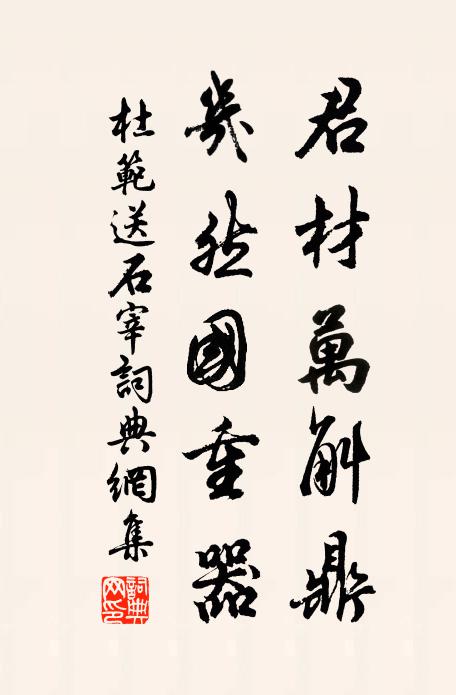 君材萬斛鼎
然國重器
杜範送石宰詞典網集
詞典
网印